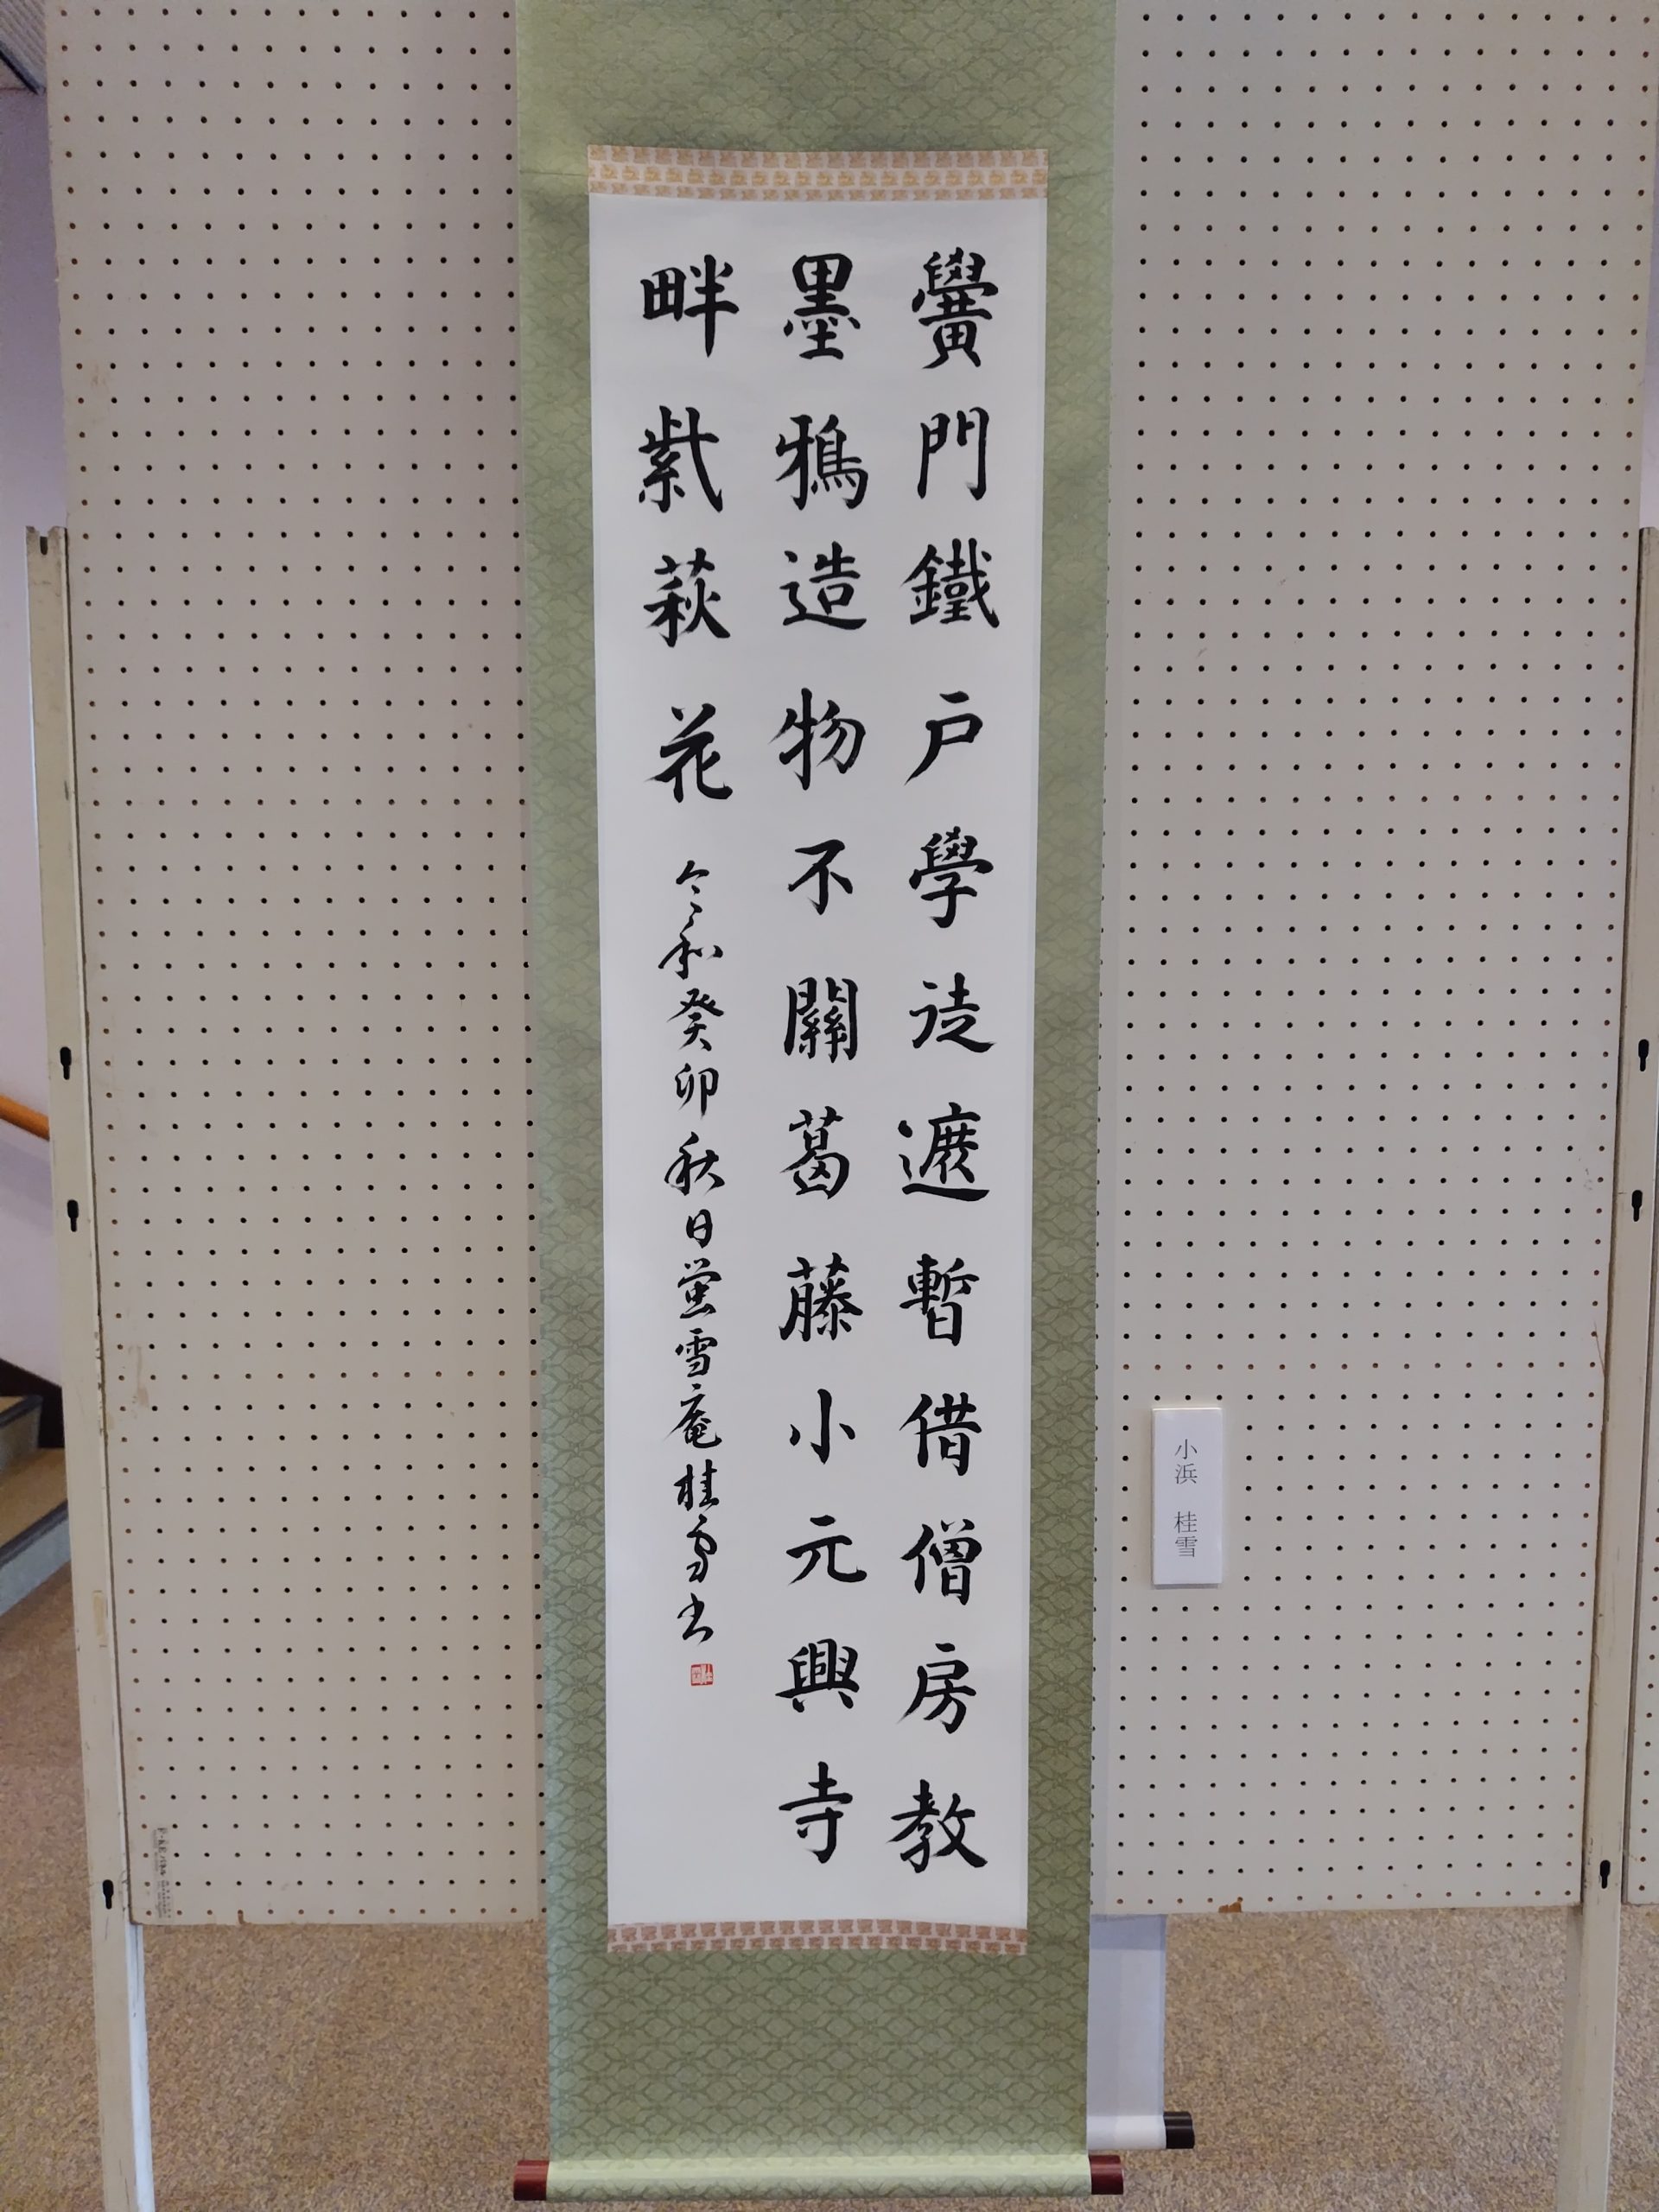 黌門鐵戸學徒遮暫借僧房教
墨鴉造物不關葛藤小元興寺
畔紫萩花 令和癸卯秋日蛍雪庵桂雪書
小浜 桂雪